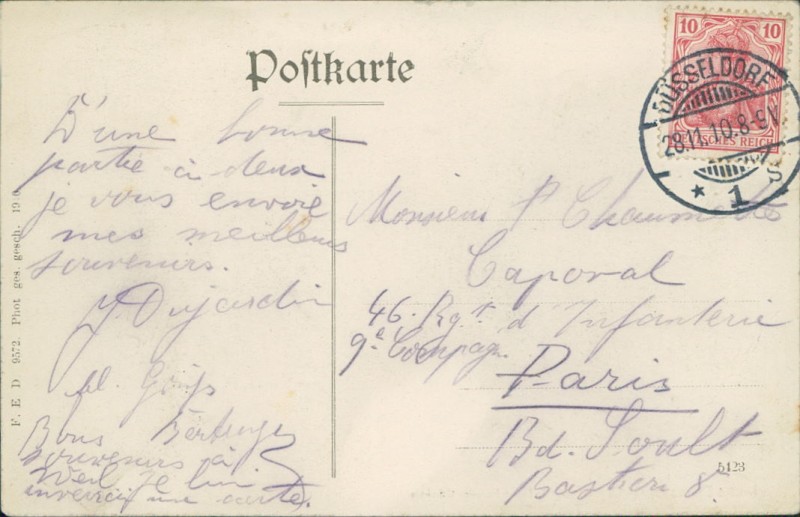 Postkarte
D'une bonne
partie à deux
je vous envoie
mes meilleurs
souvenirs.
J. Dujardin
fl. Gruß
Bons
souvenirs à
Weil je lui
enverrai une carte.
Monsieur P Chaumette
Caporal
46. Rgt d'Infanterie
9e Compagn.
Paris
Bd. Soult
Bastion 8.
10 10
DEUTSCHES REICH
DÜSSELDORF
28.11.10.8-9V
* 1 S
F. E. D 9572. Phot ges. gesch. 1910
5123